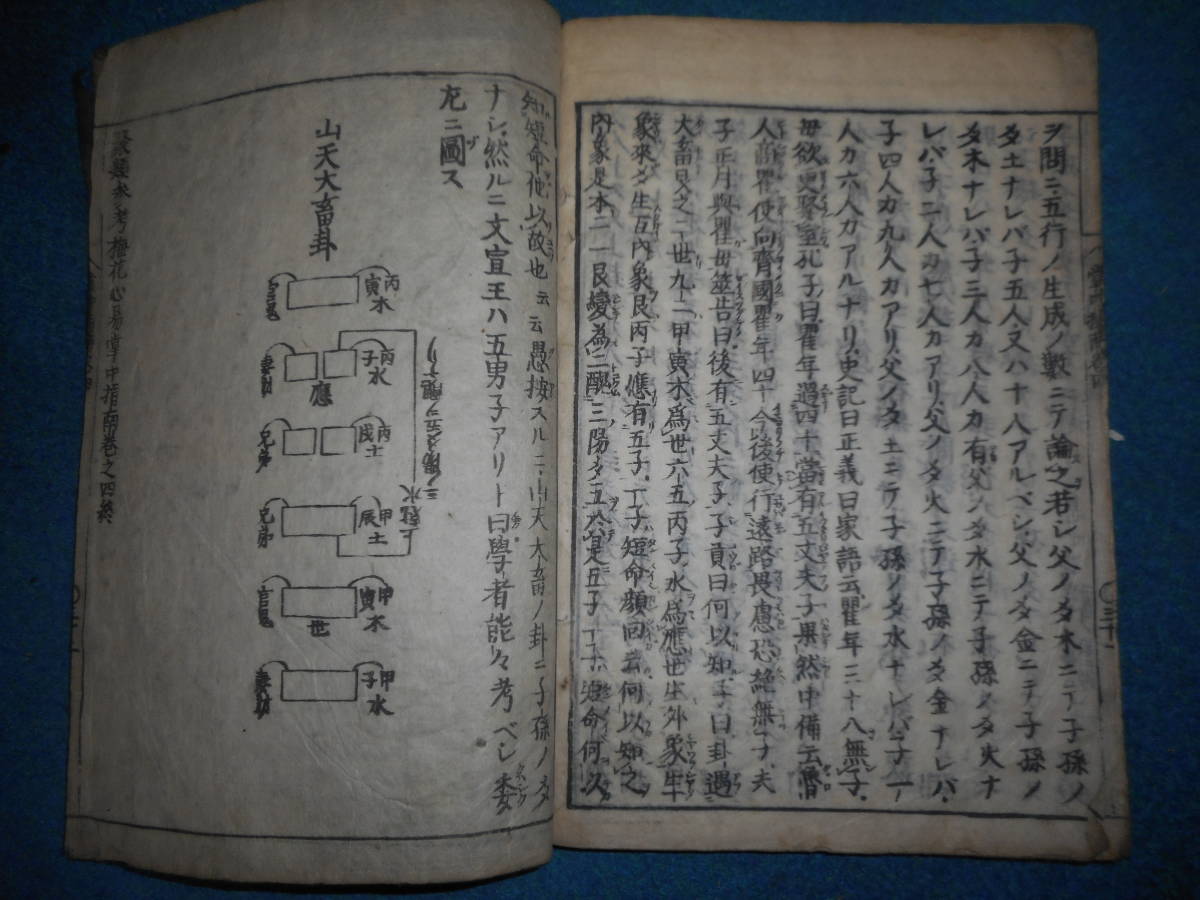 ヲ問ニ五行ノ生成ノ數ニテ論之若シ父ノ爻木ニテ子孫ノ
爻土ナレバ子五人又ハ十人アルベシ父ノ爻金ニテ子孫ノ
爻木ナレバ子三人カ八人カ有父ノ爻水ニテ子孫ノ爻火ナ
レバ子二人カ七人カアリ父ノ爻火ニテ子孫ノ爻金ナレバ
子四人カ九人カアリ父ノ爻土ニテ子孫ノ爻水ナレバ子一
人カ六人カアルナリ史記曰正義曰家語云瞿年三十八無子
母欲更娶室孔子曰瞿年過四十當有五丈夫子果然中備云魯
人商瞿使向齊國瞿年四十今後使行遠路畏慮恐絶無子夫
子正月與瞿母筮告曰後有五丈夫子子貢曰何以知子曰卦遇
大畜艮之二世九二甲寅木爲世六五丙子水爲應世生外象生
象來爻生互内象艮丙子應有五子一子短命顔回云何以知之
内象是本子一艮變爲二醜三陽爻五於是五子一子短命何以
知短命他以故也云云愚按スルニ山天大畜ノ卦ニ子孫ノ爻
ナシ然ルニ文宣王ハ五男子アリト曰學者能々考ベシ委
左ニ圖ス
山天大畜卦
丙寅木
官鬼
丙子水
妻財
應
丙戌土
兄弟
甲辰土
兄弟
甲寅木
官鬼
世
甲子水
妻財
梅花心易掌中指南巻之四終